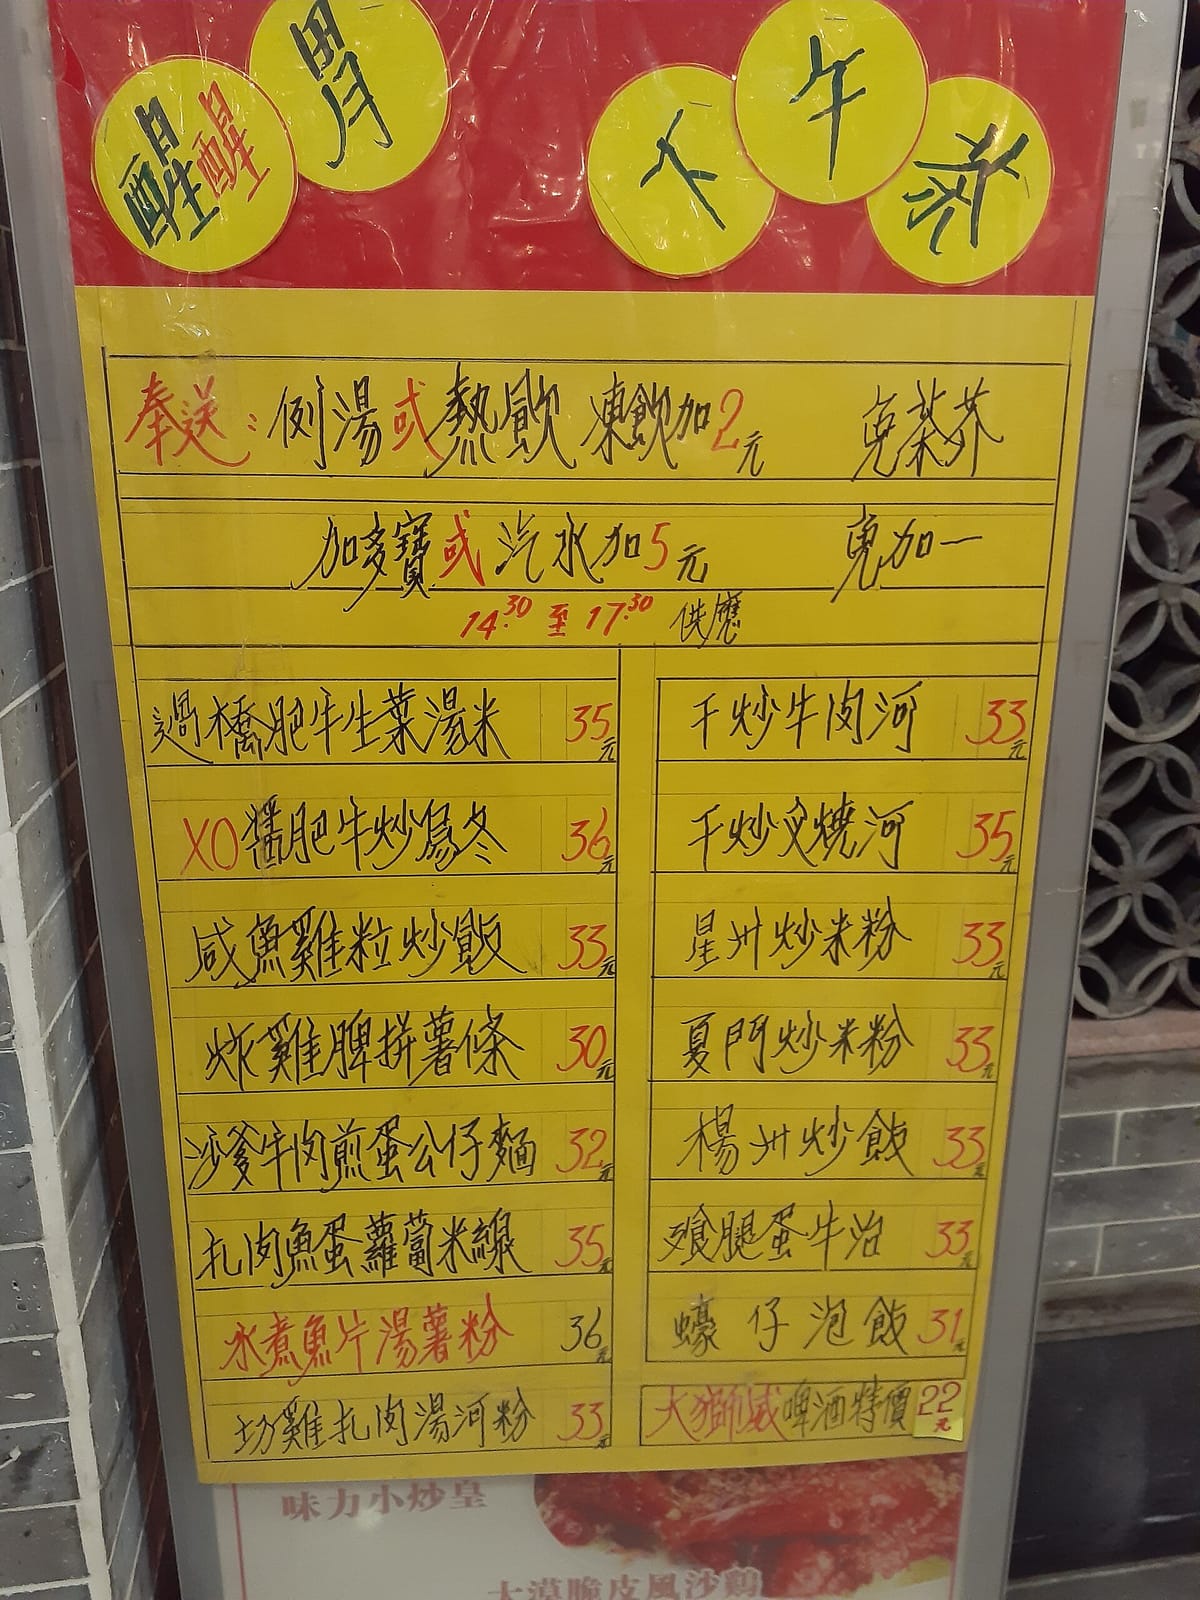 醒醒胃 下午茶
奉送：例湯或熱飲 凍飲加2元 免茶芥
加多寶或汽水加5元 免加一
14:30 至 17:30 供應
過橋肥牛生菜湯米 35元
XO醬肥牛炒烏冬 36元
咸魚雞粒炒飯 33元
炸雞脾拼薯條 30元
沙爹牛肉煎蛋公仔麵 32元
扎肉魚蛋蘿蔔米線 35元
水煮魚片湯薯粉 36元
切雞扎肉湯河粉 33元
干炒牛肉河 33元
干炒叉燒河 35元
星州炒米粉 33元
夏門炒米粉 33元
楊州炒飯 33元
飡腿蛋牛治 33元
蠔仔泡飯 31元
大獅威啤酒特價 22元
味力小炒皇
大漠脆皮風沙鷄